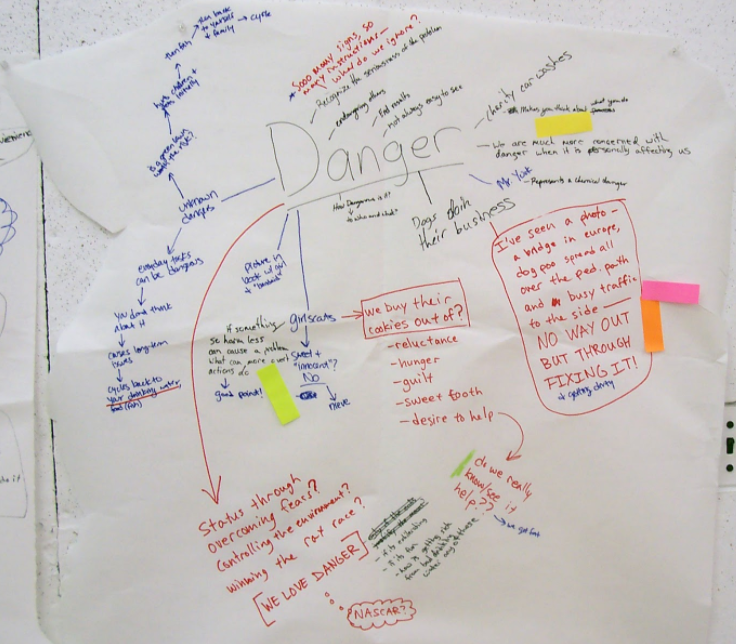 then back
to yourself
+ family
→ cycle
then fish
hurts children +
Is a green lawn
worth the risk?
unknown
dangers
everyday tasks
can be dangerous
you don't think
about it
causes long term
issues
cycles back to
your drinking water
food (fish)
Sooo many signs, so
many instructions—
what do we ignore?
Recognize the seriousness of the problem
endangering others
End results
not always easy to see
Danger
charity car washes
Makes you think about what you do
— We are much more concerned with
danger when it is personally affecting us
Mr. Yuk
- Represents a chemical danger
How Dangerous is it?
→ to who and what?
Dogs doin
their business
I've seen a photo –
a bridge in europe,
dog poo spread all
over the ped. path
and busy traffic
to the side —
NO WAY OUT
BUT THROUGH
FIXING IT!
+ getting dirty
picture in
book w/ girl
+
girlscouts
If something
so harmless
can cause a problem
what can more overt
actions do
good point!
sweet +
"innocent"?
No
naive
we buy their
cookies out of?
-reluctance
-hunger
-guilt
-sweet tooth
-desire to help
do we really
know/see it
help??
→ we get fat
Status through
overcoming fears?
controlling the environment?
winning the rat race?
[WE LOVE DANGER]
NASCAR?
- if its
- if its fun
- how is getting sick
from bad drinking
water any of these